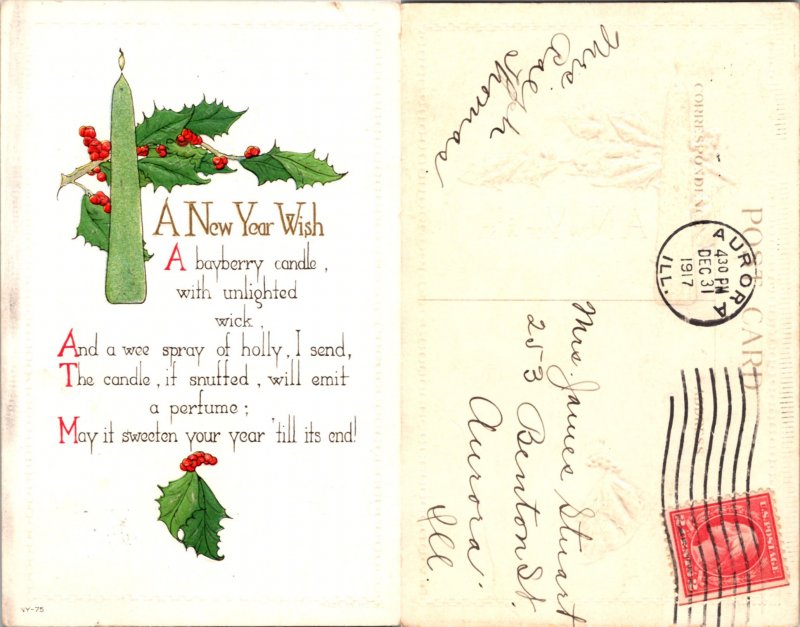 A New Year Wish
A bayberry candle,
with unlighted
wick,
And a wee spray of holly, I send,
The candle, if snuffed, will emit
a perfume;
May it sweeten your year 'till its end!
NY-75
POST CARD
CORRESPONDENCE
Mrs
Thomas
AURORA
ILL.
430 PM
DEC 31
1917
Mrs. James Stuart
253 Benton St.
Aurora
Ill.
U.S. POSTAGE